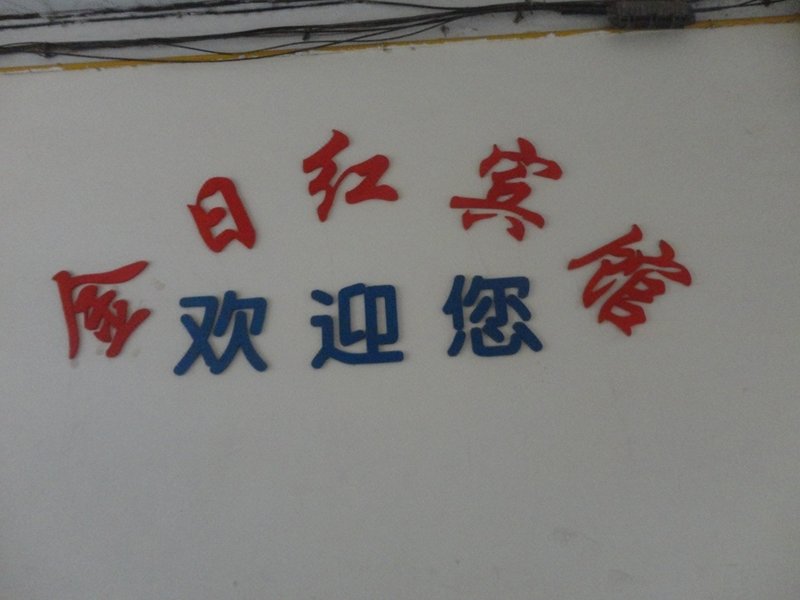 金日红宾馆
欢迎您